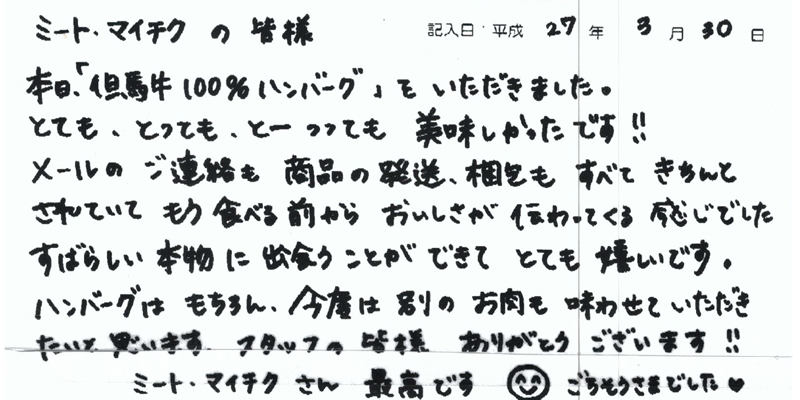 ミート・マイチクの皆様　記入日：平成 27 年 3 月 30 日
本日、「但馬牛100%ハンバーグ」を いただきました。
とても、とっても、とーっっても 美味しかったです!!
メールのご連絡も 商品の発送、梱包も すべて きちんと
されていて もう食べる前から おいしさが 伝わってくる 感じでした
すばらしい本物に出会うことができて とても 嬉しいです。
ハンバーグは もちろん、今度は別の お肉も 味わせていただき
たいと思います。スタッフの皆様 ありがとうございます!!
ミート・マイチクさん 最高です ごちそうさまでした♥